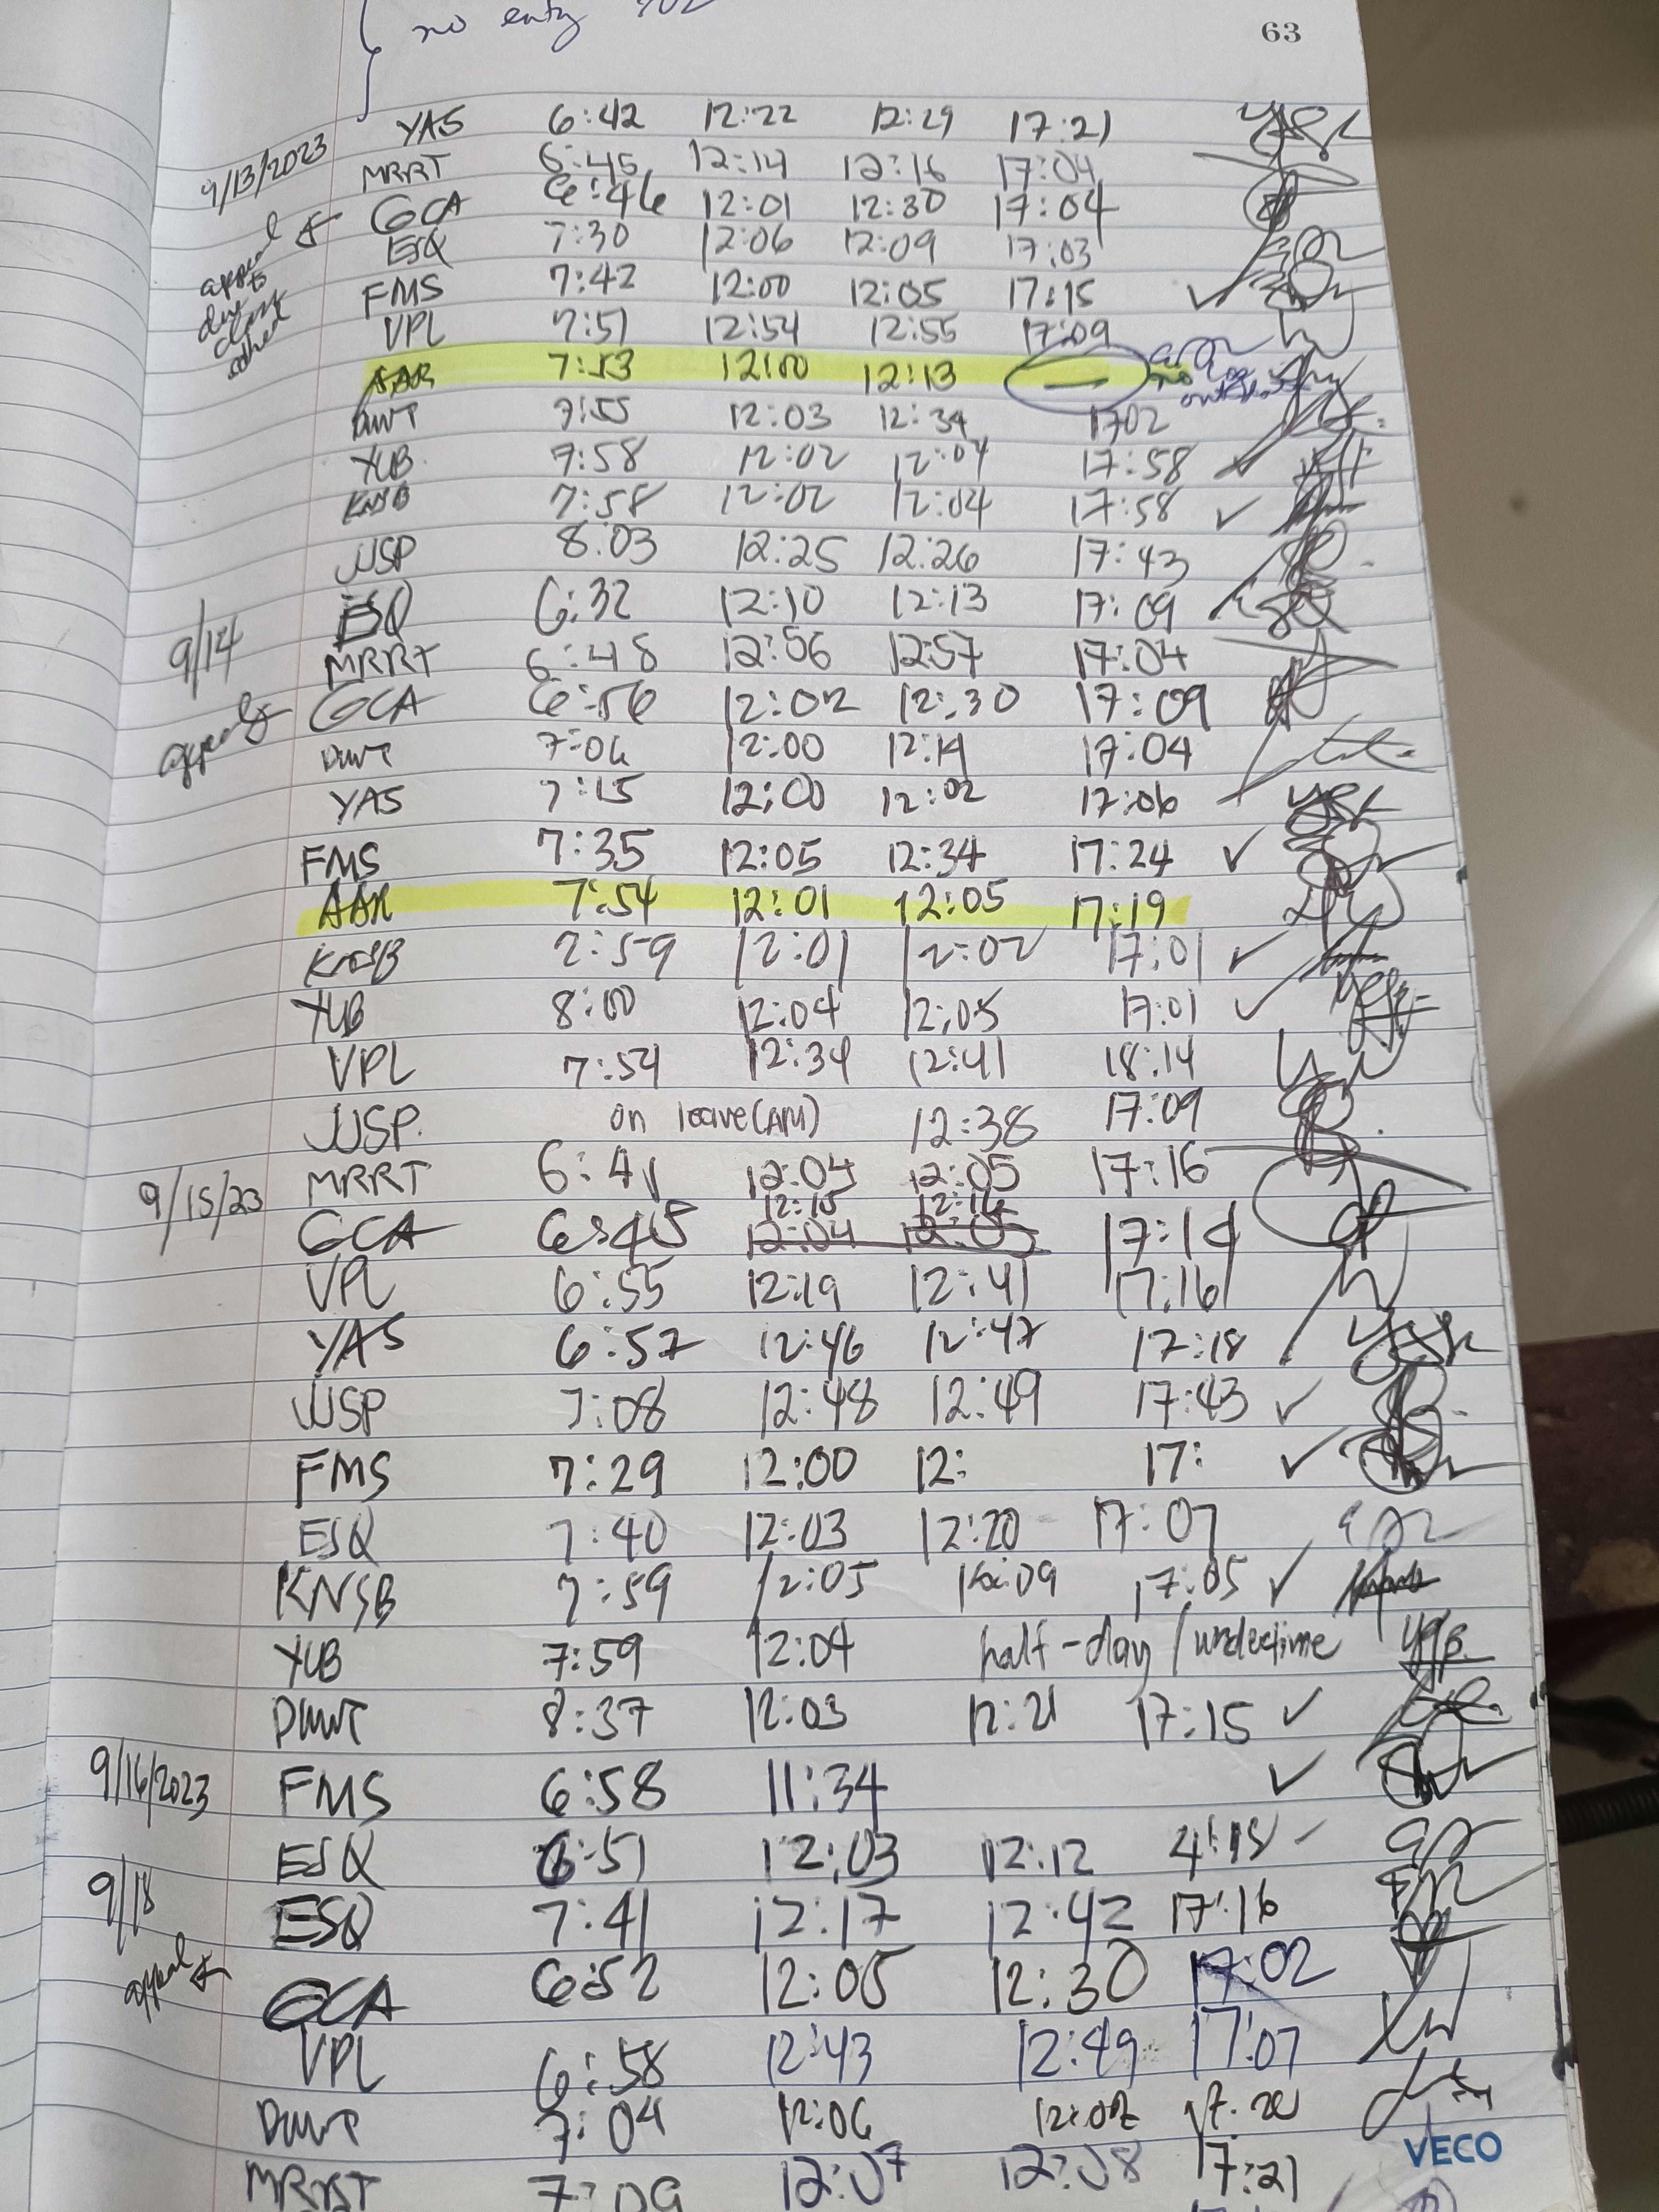 no entry
63
YAS 6:42 12:22 12:29 17:21
9/13/2023 MRRT 6:45 12:14 12:16 17:04
GCA 6:46 12:01 12:30 17:04
appeal due to
ESQ 7:30 12:06 12:09 17:03
FMS 7:42 12:00 12:05 17:15 ✓
VPL 7:51 12:54 12:55 17:09
AAR 7:53 12:00 12:13 — no
DWT 7:55 12:03 12:34 1702
YUB 7:58 12:02 12:04 17:58 ✓
KNSB 7:58 12:02 12:04 17:58 ✓
JJSP 8:03 12:25 12:26 17:43
9/14 ESQ 6:32 12:10 12:13 17:09
MRRT 6:48 12:56 12:57 17:04
appeal GCA 6:56 12:02 12:30 17:09
DWT 7:06 12:00 12:14 17:04
YAS 7:15 12:00 12:02 17:06
FMS 7:35 12:05 12:34 17:24 ✓
AAR 7:54 12:01 12:05 17:19
KNSB 7:59 12:01 12:02 17:01 ✓
YUB 8:00 12:04 12:05 17:01 ✓
VPL 7:54 12:34 12:41 18:14
JJSP. on leave (AM) 12:38 17:09
9/15/23 MRRT 6:41 12:04 12:05 17:16
12:15 12:16
GCA 6:45 12:04 12:05 17:14
VPL 6:55 12:19 12:41 17:16
YAS 6:57 12:46 12:47 17:18
JJSP 7:08 12:48 12:49 17:43 ✓
FMS 7:29 12:00 12: 17: ✓
ESQ 7:40 12:03 12:20 17:07
KNSB 7:59 12:05 12:09 17:05 ✓
YUB 7:59 12:04 half-day/undertime
DWT 8:37 12:03 12:21 17:15 ✓
9/16/2023 FMS 6:58 11:34 ✓
ESQ 6:51 12:03 12:12 4:15
9/18 ESQ 7:41 12:17 12:42 17:16
appeal GCA 6:52 12:05 12:30 17:02
VPL 6:58 12:43 12:49 17:07
DWT 7:04 12:06 12:07 17:20
MRRT 7:09 12:07 12:08 17:21
VECO